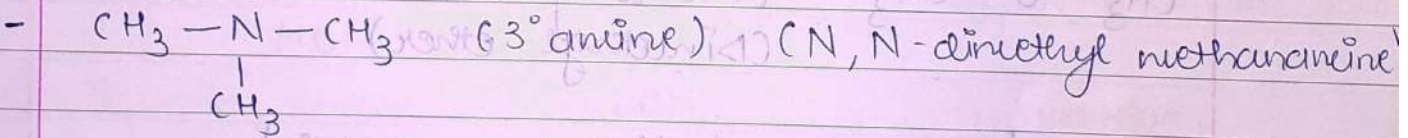 - CH3 - N - CH3 (3° amine) (N, N-dimethyl methanamine)
|
CH3